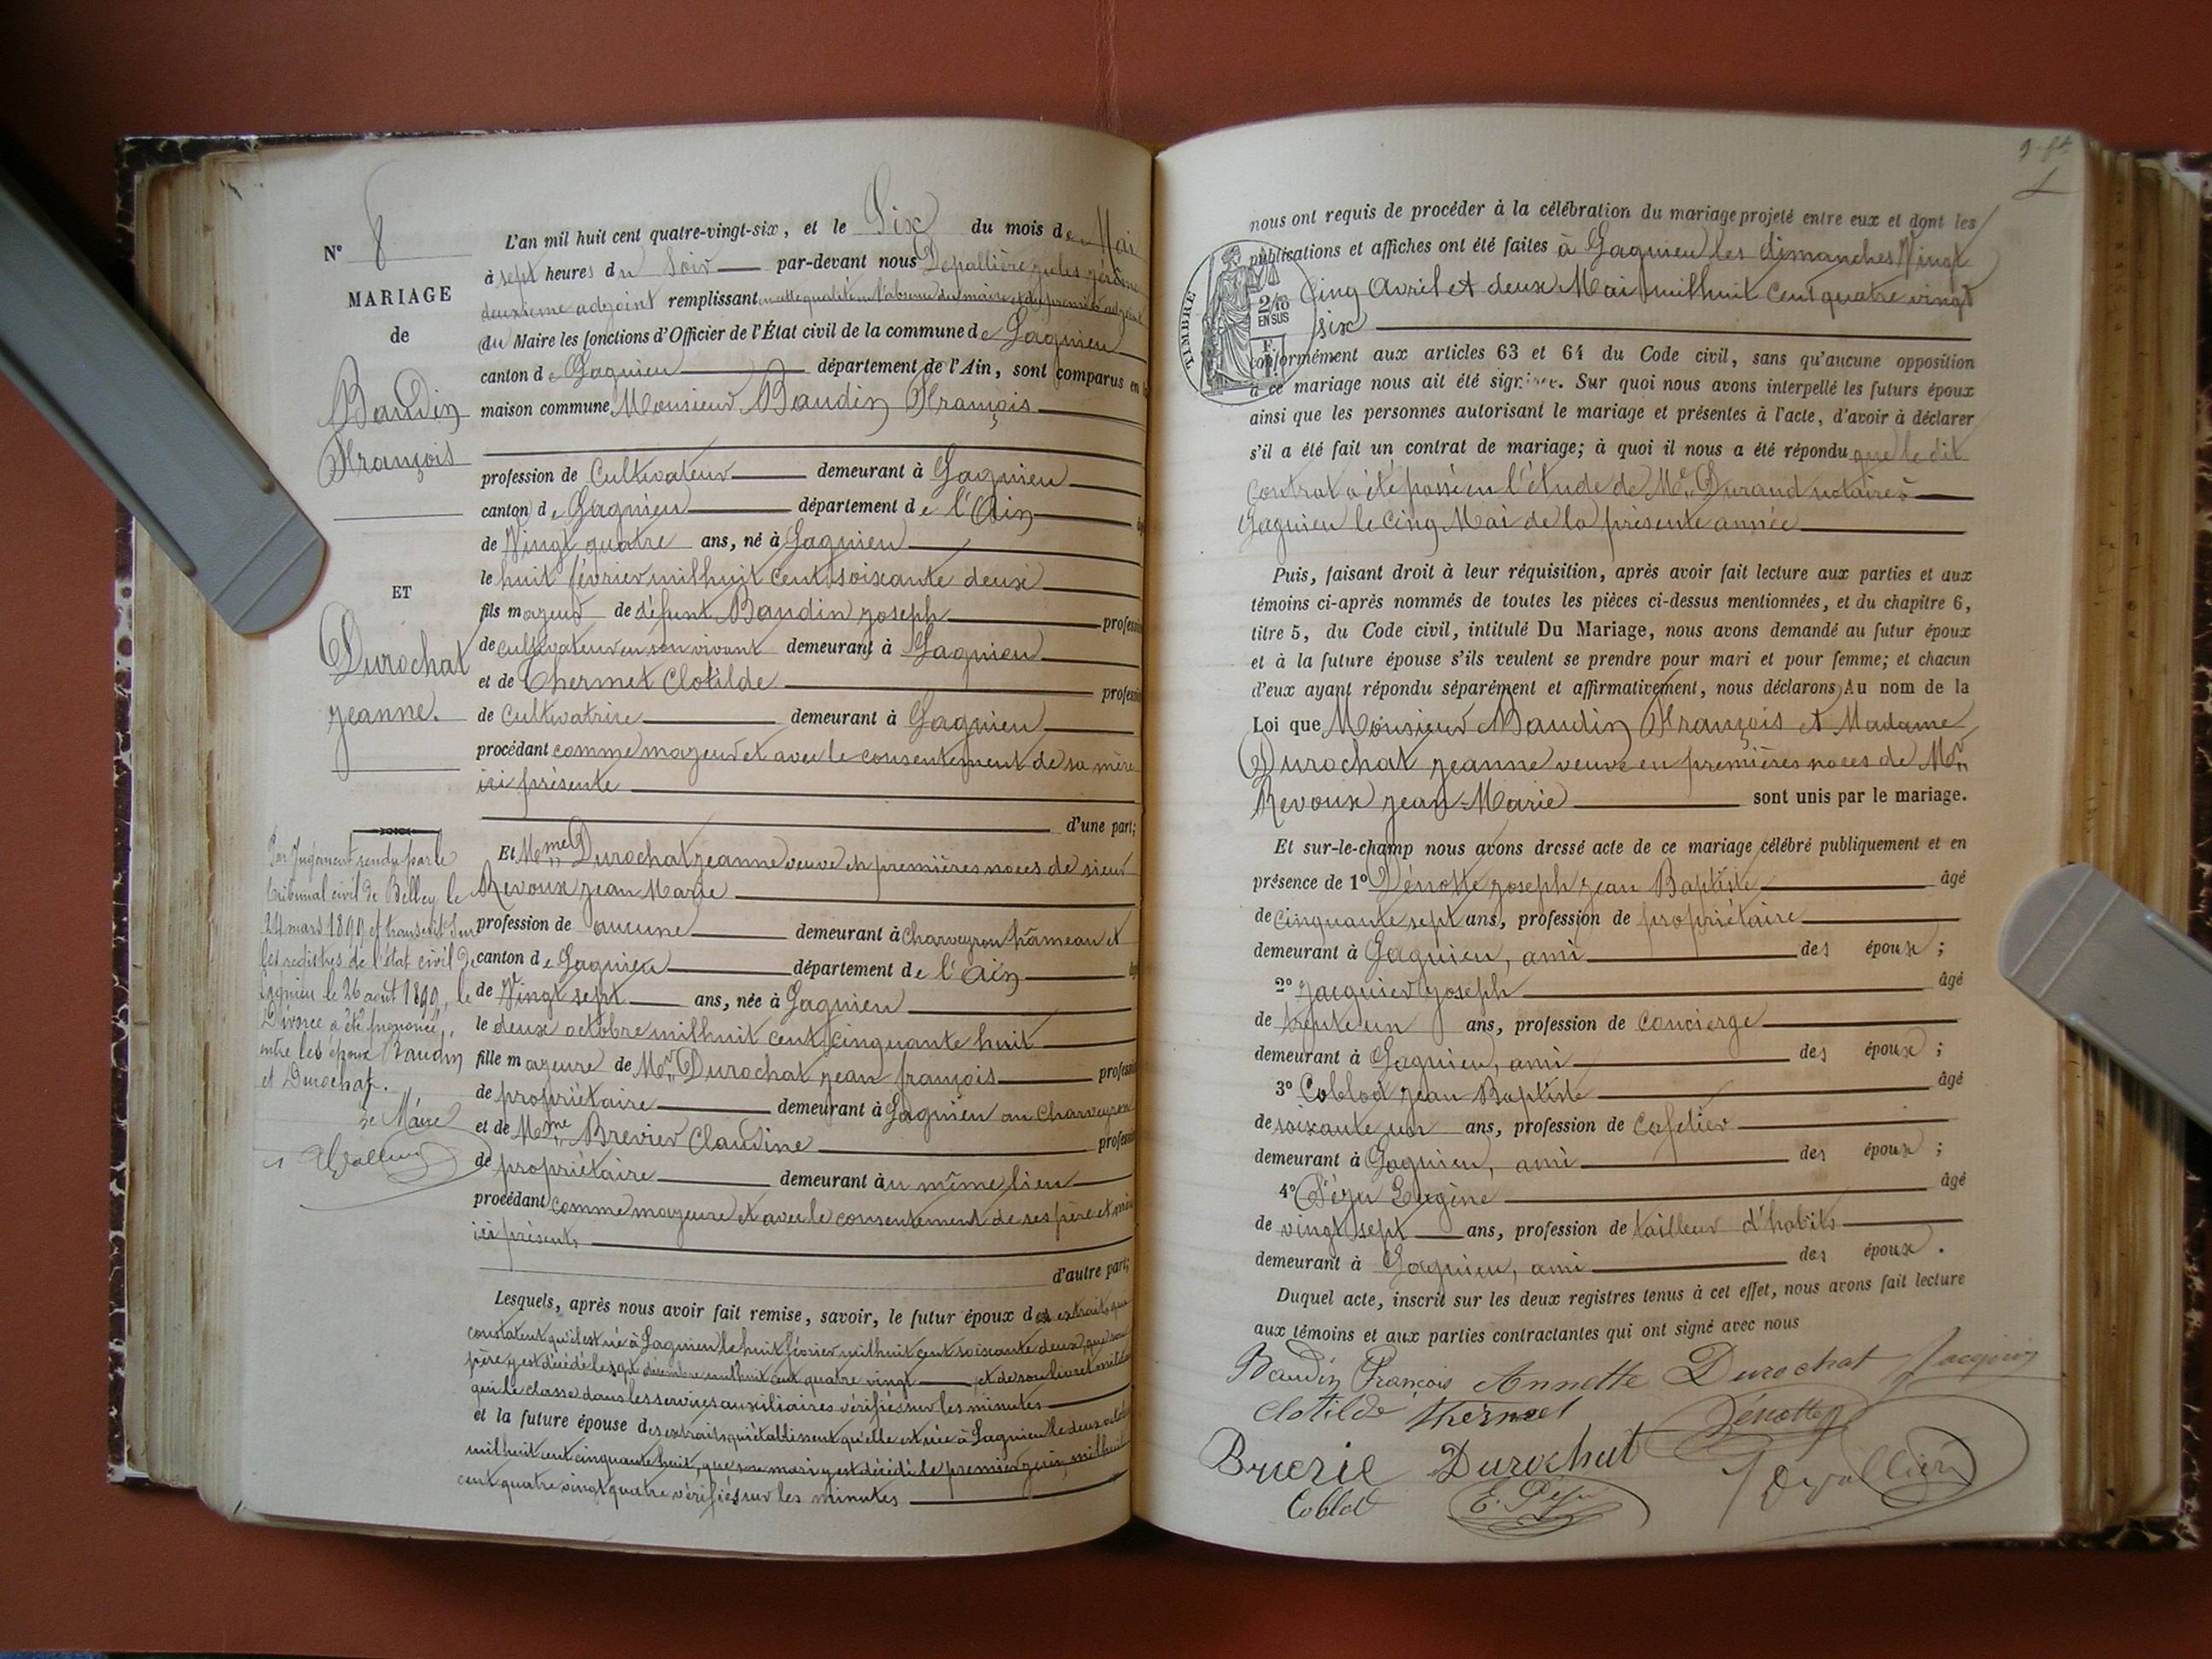 N° 8
MARIAGE
de
Baudin
François
ET
Durochat
Jeanne.
Par Jugement rendu par le
tribunal civil de Belley le
24 mars 1899 et transcrit sur
les registres de l'état civil de
Lagnieu le 26 août 1899, le
Divorce a été prononcé,
entre les époux Baudin
et Durochat.
Le Maire
L'an mil huit cent quatre-vingt-six, et le Six du mois de Mai
à sept heures du soir par-devant nous Depallière Jules Jérôme
deuxième adjoint remplissant en cette qualité en l'absence du maire et du premier adjoint
du Maire les fonctions d'Officier de l'État civil de la commune de Lagnieu
canton de Lagnieu département de l'Ain, sont comparus en la
maison commune Monsieur Baudin François
profession de Cultivateur demeurant à Lagnieu
canton de Lagnieu département de l'Ain
de Vingt quatre ans, né à Lagnieu
le huit février mil huit cent soixante deux
fils majeur de défunt Baudin Joseph profession
de cultivateur en son vivant demeurant à Lagnieu
et de Thermet Clotilde profession
de cultivatrice demeurant à Lagnieu
procédant comme majeur et avec le consentement de sa mère
ici présente
d'une part;
Et Mme Durochat Jeanne veuve en premières noces de sieur
Revoux Jean Marie
profession de aucune demeurant à Charveyron hameau et
canton de Lagnieu département de l'Ain
de Vingt sept ans, née à Lagnieu
le deux octobre mil huit cent cinquante huit
fille majeure de Mr Durochat Jean françois profession
de propriétaire demeurant à Lagnieu au Charveyron
et de Mme Brevier Claudine profession
de propriétaire demeurant au même lieu
procédant comme majeure et avec le consentement de ses père et mère
ici présents
d'autre part;
Lesquels, après nous avoir fait remise, savoir, le futur époux des extraits qui
constatent qu'il est né à Lagnieu le huit février mil huit cent soixante deux, que son
père y est décédé le sept décembre mil huit cent quatre vingt et de son livret militaire
qui le classe dans les services auxiliaires vérifiés sur les minutes
et la future épouse des extraits qui établissent qu'elle est née à Lagnieu le deux octobre
mil huit cent cinquante huit, que son mari y est décédé le premier juin mil huit
cent quatre vingt quatre vérifiés sur les minutes
TIMBRE
2/10
EN SUS
nous ont requis de procéder à la célébration du mariage projeté entre eux et dont les
publications et affiches ont été faites à Lagnieu les dimanches Vingt
Cinq Avril et deux Mai mil huit cent quatre vingt
six
conformément aux articles 63 et 64 du Code civil, sans qu'aucune opposition
à ce mariage nous ait été signifiée. Sur quoi nous avons interpellé les futurs époux
ainsi que les personnes autorisant le mariage et présentes à l'acte, d'avoir à déclarer
s'il a été fait un contrat de mariage; à quoi il nous a été répondu que le dit
contrat a été passé en l'étude de Me Durand notaire à
Lagnieu le Cinq Mai de la présente année
Puis, faisant droit à leur réquisition, après avoir fait lecture aux parties et aux
témoins ci-après nommés de toutes les pièces ci-dessus mentionnées, et du chapitre 6,
titre 5, du Code civil, intitulé Du Mariage, nous avons demandé au futur époux
et à la future épouse s'ils veulent se prendre pour mari et pour femme; et chacun
d'eux ayant répondu séparément et affirmativement, nous déclarons Au nom de la
Loi que Monsieur Baudin François et Madame
Durochat Jeanne veuve en premières noces de Mr
Revoux Jean-Marie sont unis par le mariage.
Et sur-le-champ nous avons dressé acte de ce mariage célébré publiquement et en
présence de 1° Dénotte Joseph Jean Baptiste âgé
de cinquante sept ans, profession de propriétaire
demeurant à Lagnieu, ami des époux;
2° Jacquier Joseph âgé
de trente un ans, profession de concierge
demeurant à Lagnieu, ami des époux;
3° Coblod Jean Baptiste âgé
de soixante un ans, profession de cafetier
demeurant à Lagnieu, ami des époux;
4° Péju Eugène âgé
de vingt sept ans, profession de tailleur d'habits
demeurant à Lagnieu, ami des époux.
Duquel acte, inscrit sur les deux registres tenus à cet effet, nous avons fait lecture
aux témoins et aux parties contractantes qui ont signé avec nous
Baudin François Annette Durochat Jacquier
Clotilde thermet Dénotte
Durochat Depallière
Coblod E. Péju